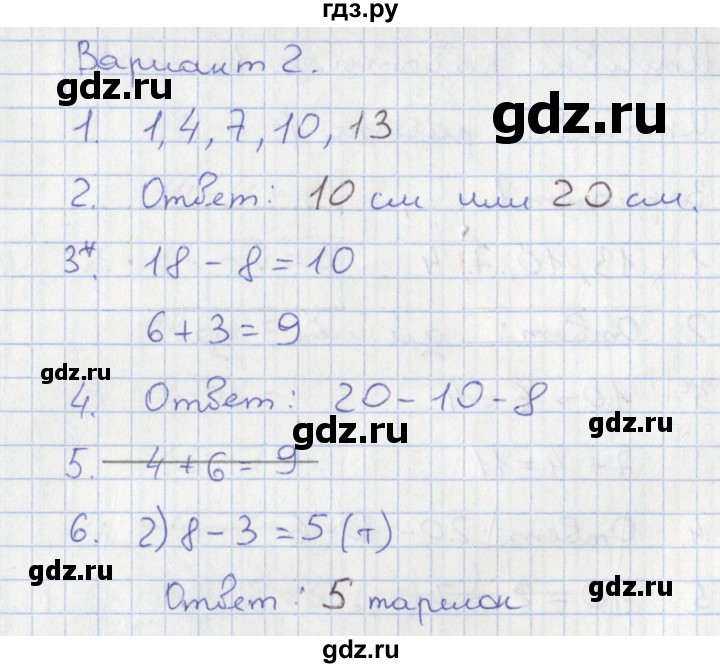 гдз.ру
Вариант 2.
gdz.ru
gdz.ru
1. 1, 4, 7, 10, 13
2. Ответ: 10 см или 20 см.
3*. 18 - 8 = 10
6 + 3 = 9
gdz.ru
4. Ответ: 20 - 10 - 8
gdz.ru
5. 4 + 6 = 9
6. 2) 8 - 3 = 5 (т)
gdz.ru
Ответ: 5 тарелок
gdz.ru
gdz.ru